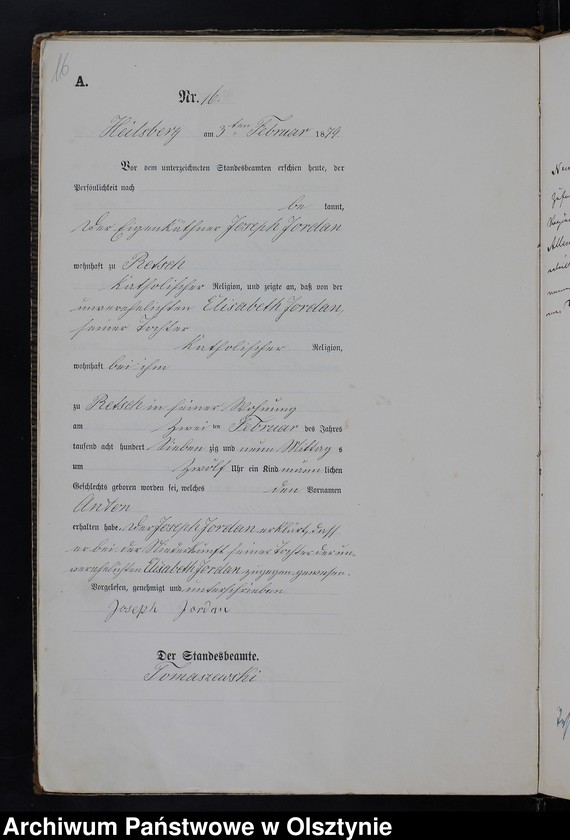 16
A.
Nr. 16.
Heilsberg am 3ten Februar 1879.
Vor dem unterzeichneten Standesbeamten erschien heute, der
Persönlichkeit nach
be kannt,
der Eigenkäthner Joseph Jordan
wohnhaft zu Retsch
katholischer Religion, und zeigte an, daß von der
unverehelichten Elisabeth Jordan,
seiner Tochter
katholischer Religion,
wohnhaft bei ihm
zu Retsch in seiner Wohnung
am zwei ten Februar des Jahres
tausend acht hundert Sieben zig und neun Mittag s
um zwölf Uhr ein Kind männ lichen
Geschlechts geboren worden sei, welches den Vornamen
Anton
erhalten habe. Der Joseph Jordan erklärt, dass
er bei der Niederkunft seiner Tochter der un-
verehelichten Elisabeth Jordan zugegen gewesen.
Vorgelesen, genehmigt und unterschrieben
Joseph Jordan
Der Standesbeamte.
Tomaszewski
Archiwum Państwowe w Olsztynie